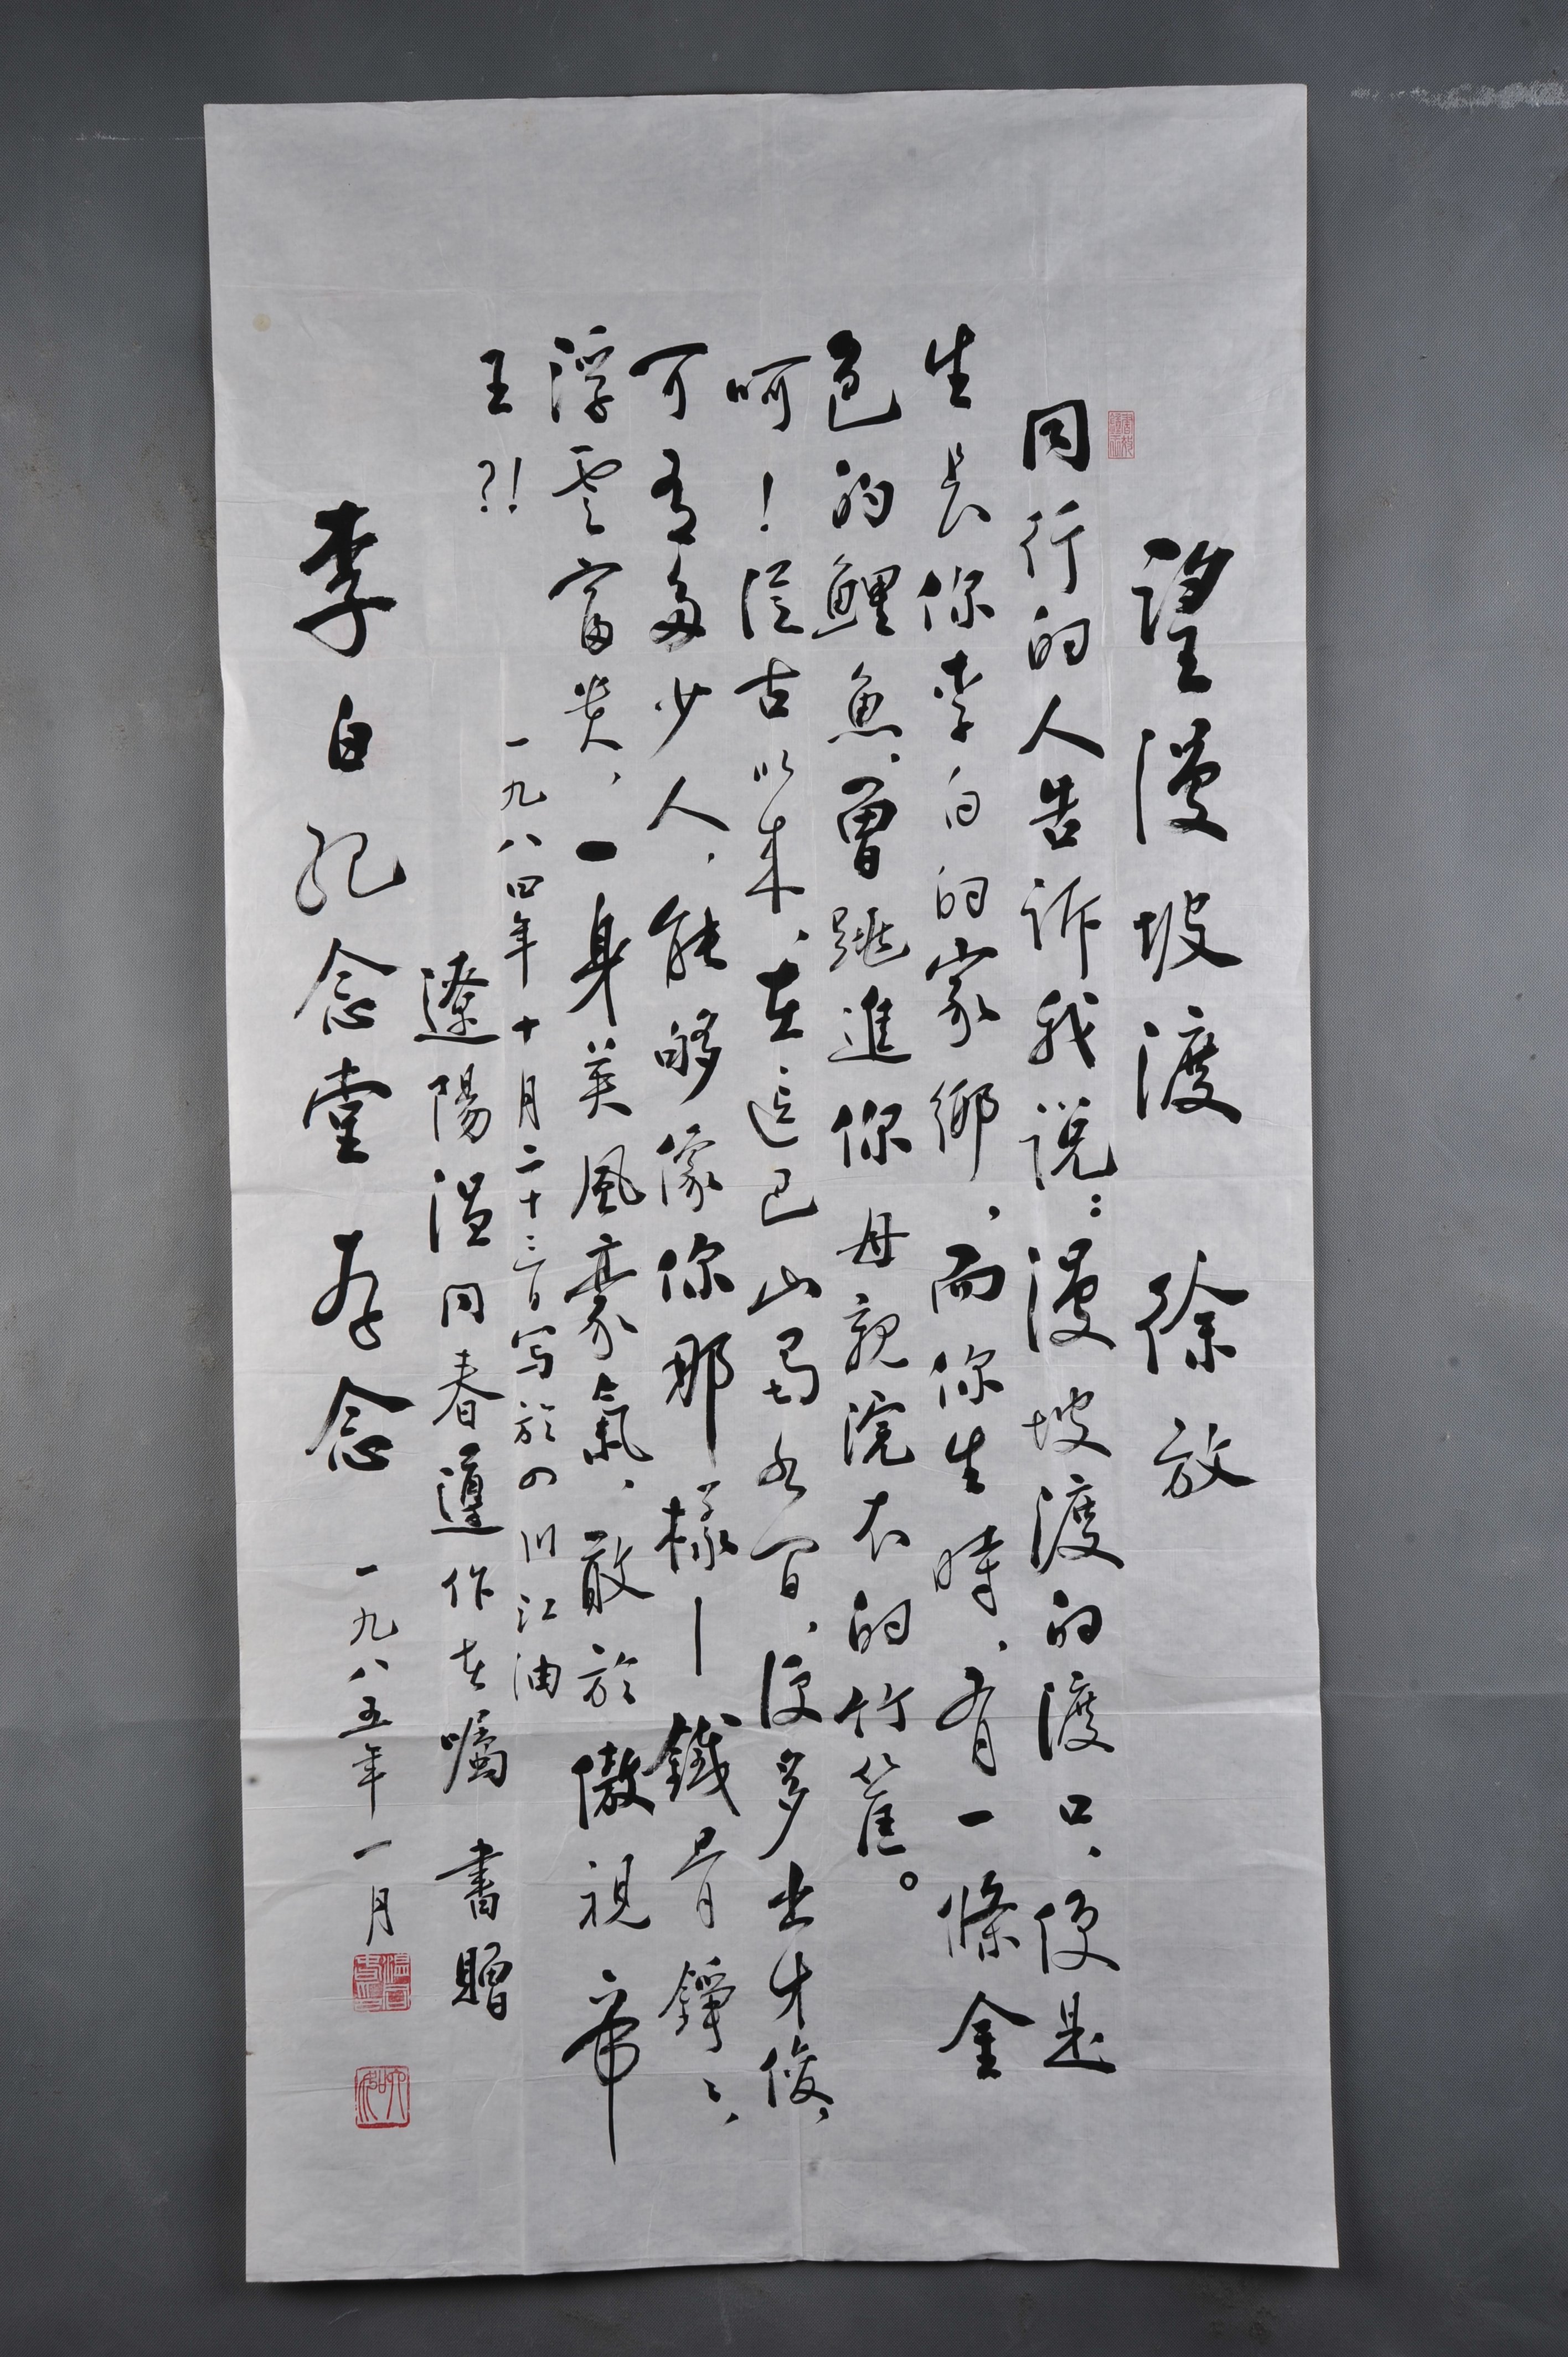 望漫坡渡 徐放
同行的人告訴我说：漫坡渡的渡口，便是
生长你李白的家鄉，而你生時，有一條金
色的鯉魚，曾跳進你母親浣衣的竹筐。
呵！從古以来，在這巴山蜀水间，便多出才俊，
可有多少人，能够像你那樣—鐵骨錚々，
浮雲富贵，一身英風豪氣，敢於傲視帝
王？！
一九八四年十月二十三日写於四川江油
遼陽温同春遵作者囑 書贈
李白纪念堂存念 一九八五年一月